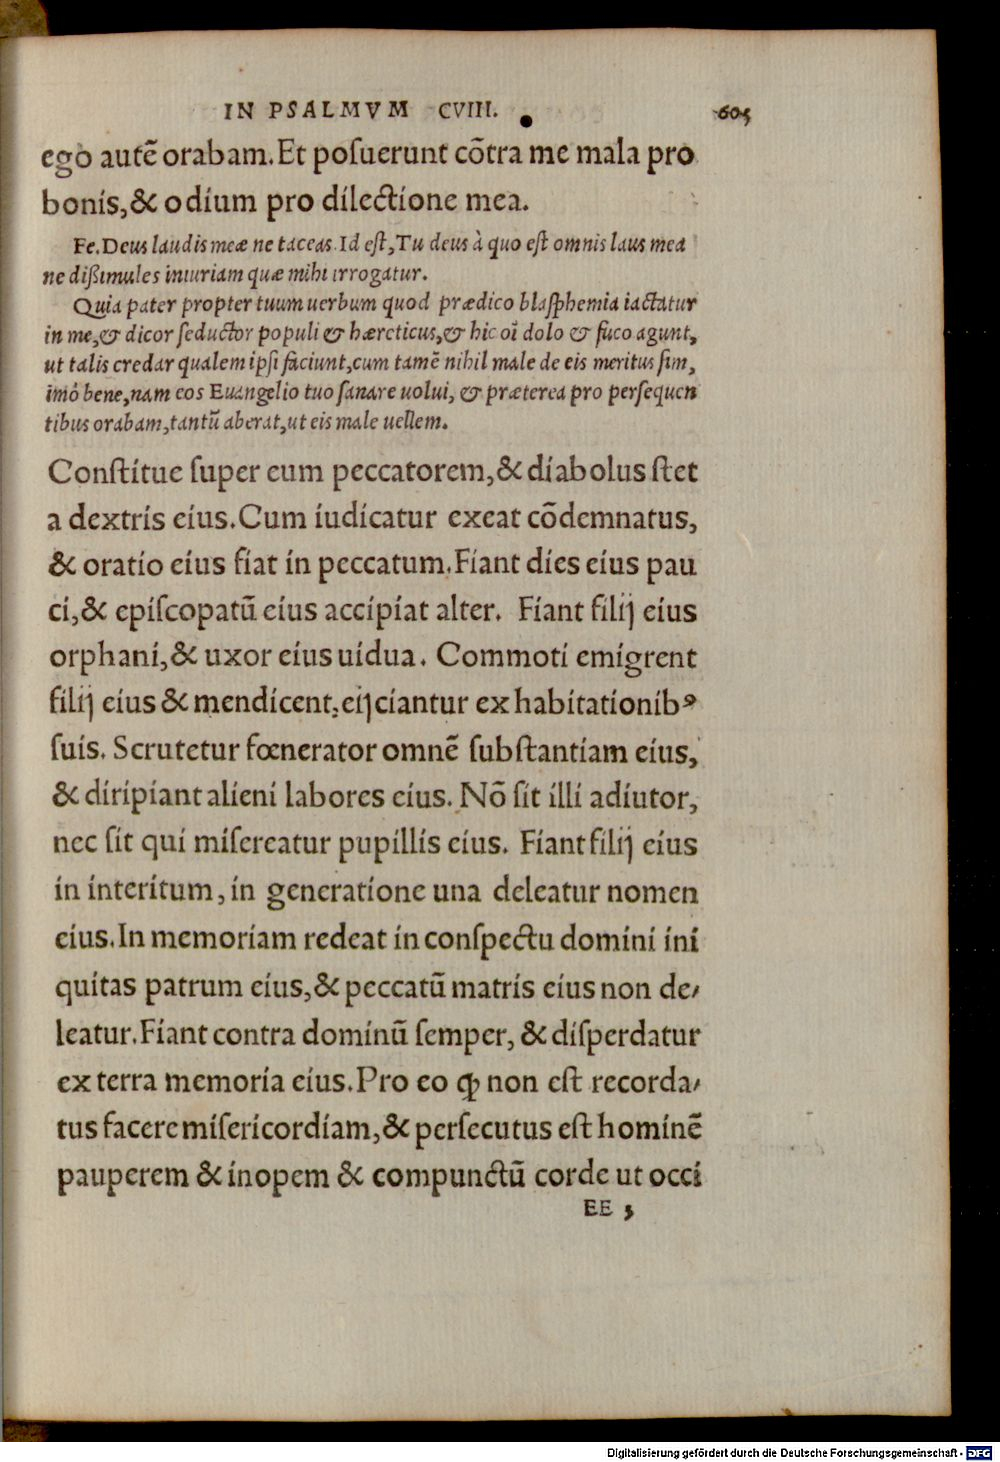 IN PSALMVM CVIII. 605
ego autē orabam. Et poſuerunt cōtra me mala pro
bonis, & odium pro dilectione mea.
Fe. Deus laudis meæ ne taceas. Id eſt, Tu deus à quo eſt omnis laus mea
ne dißimules iniuriam quæ mihi irrogatur.
Quia pater propter tuum uerbum quod prædico blaſphemia iactatur
in me, & dicor ſeductor populi & hæreticus, & hic oī dolo & fuco agunt,
ut talis credar qualem ipſi faciunt, cum tamē nihil male de eis meritus ſim,
imò bene, nam eos Euangelio tuo ſanare uolui, & præterea pro perſequen
tibus orabam, tantū aberat, ut eis male uellem.
Conſtitue ſuper eum peccatorem, & diabolus ſtet
a dextris eius. Cum iudicatur exeat cōdemnatus,
& oratio eius fiat in peccatum. Fiant dies eius pau
ci, & epiſcopatū eius accipiat alter. Fiant filij eius
orphani, & uxor eius uidua. Commoti emigrent
filij eius & mendicent, eijciantur ex habitationibꝰ
ſuis. Scrutetur fœnerator omnē ſubſtantiam eius,
& diripiant alieni labores eius. Nō ſit illi adiutor,
nec ſit qui miſereatur pupillis eius. Fiant filij eius
in interitum, in generatione una deleatur nomen
eius. In memoriam redeat in conſpectu domini ini
quitas patrum eius, & peccatū matris eius non de⸗
leatur. Fiant contra dominū ſemper, & diſperdatur
ex terra memoria eius. Pro eo ꝙ non eſt recorda⸗
tus facere miſericordiam, & perſecutus eſt hominē
pauperem & inopem & compunctū corde ut occi
EE 3
Digitalisierung gefördert durch die Deutsche Forschungsgemeinschaft - DFG